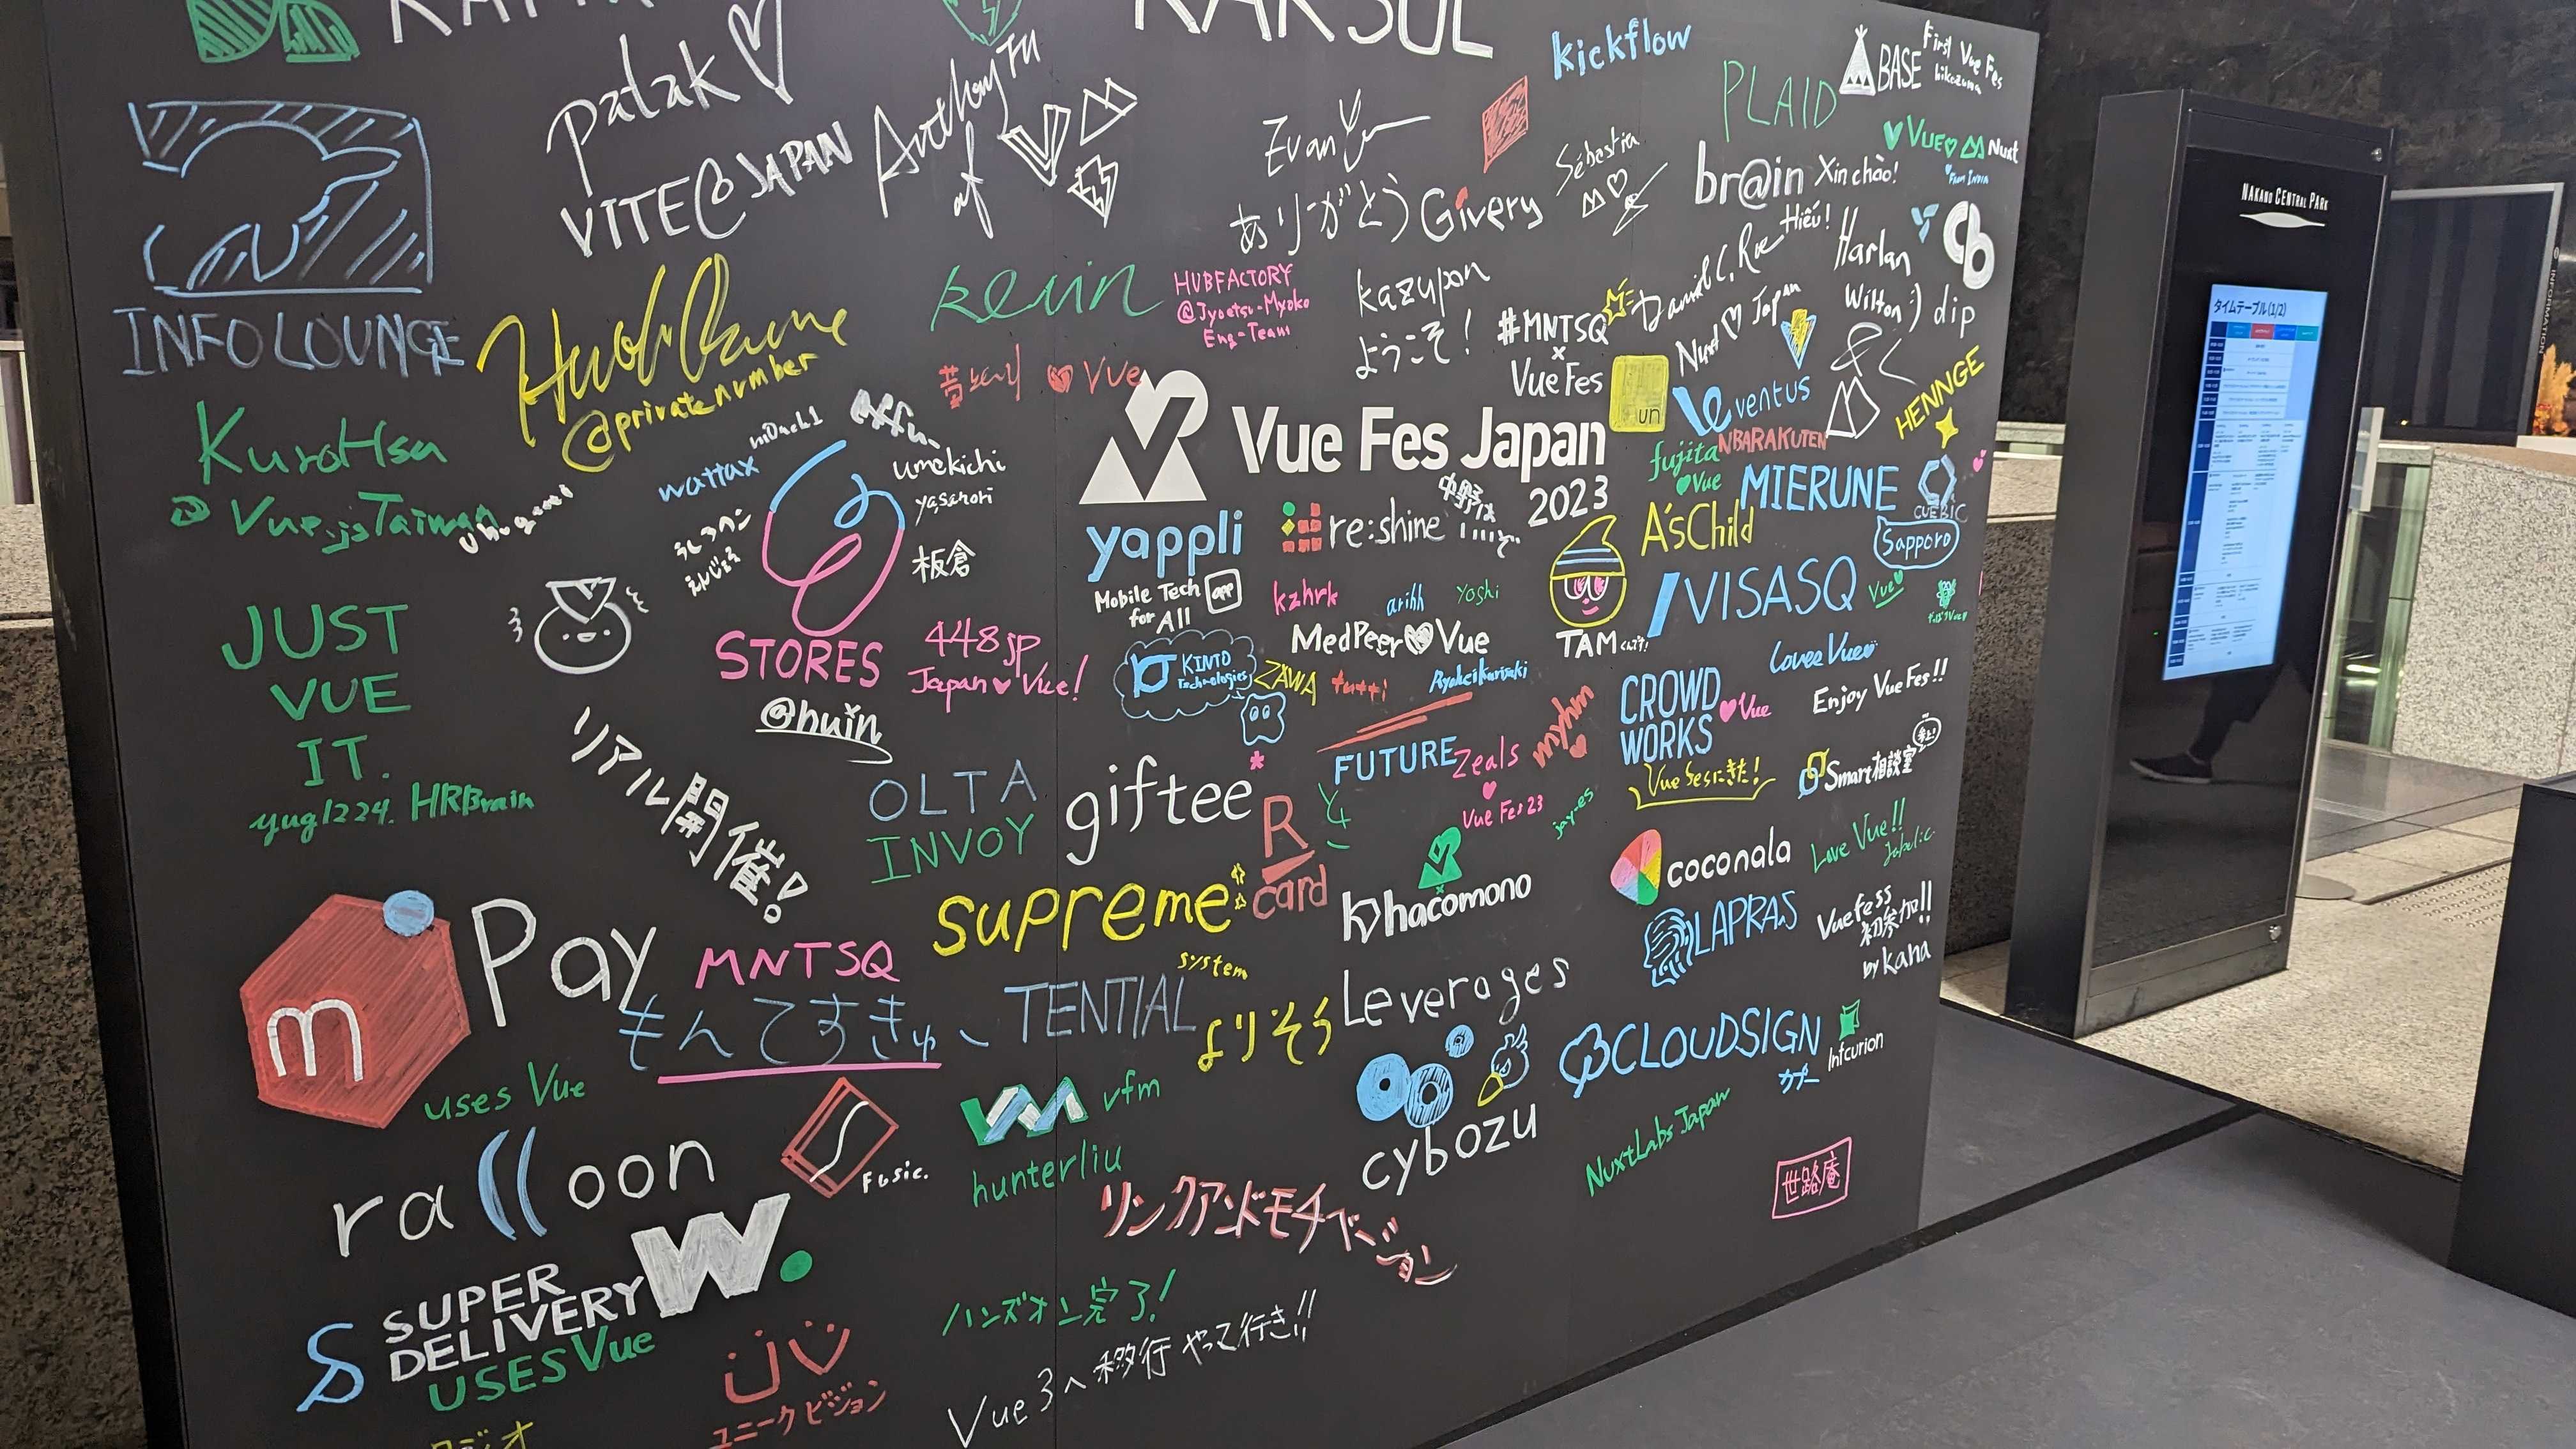 RAKSUL
patak
VITE@JAPAN
Anthony Fu
af
kickflow
PLAID
BASE
First Vue Fes
hikazuma
Vue Nuxt
From INDIA
Evan You
ありがとう
Givery
Sébastien
br@in
Xin chào!
Hiếu!
INFO LOUNGE
kevin
HUBFACTORY
@Jyoetsu-Myoko
Eng-Team
kazupon
ようこそ!
#MNTSQ
×
Vue Fes
Daniel C. Roe
Nuxt Japan
Harlan
Wilton :)
dip
@privatenumber
Vue
un
ventus
HENNGE
KuroHsu
@Vue.jsTaiwan
wattax
umekichi
yasahori
板倉
STORES
448jp
Japan Vue!
@huin
Vue Fes Japan
2023
fujita
Vue
NBARAKUTEN
MIERUNE
CUEBIC
Sapporo
yappli
Mobile Tech
for All
app
re:shine
中野はいいぞ
A'sChild
VISASQ
Vue
kzhrk
arihh
yoshi
MedPeer Vue
TAM
KINTO
Technologies
ZAWA
Ryohei Kurisaki
CROWD
WORKS
Vue
Lovee Vue
Enjoy Vue Fes!!
JUST
VUE
IT.
yug1224. HRBrain
リアル開催!
OLTA
INVOY
giftee
FUTURE
Zeals
Vue Fes 23
myhm
jay-es
Vue fesにきた!
Smart相談室
R
card
hacomono
coconala
Love Vue!!
LAPRAS
Vuefess
初参加!!
by kana
m Pay
uses Vue
MNTSQ
もんてすきゅー
supreme
system
TENTIAL
よりそう
Leverages
cybozu
CLOUDSIGN
Infcurion
NuxtLabs Japan
世路庵
ralloon
Fusic.
vfm
hunterliu
リンクアンドモチベーション
SUPER
DELIVERY
USES Vue
W.
ユニークビジョン
ハンズオン完了!
Vue 3へ移行 やって行き!!
NAKANO CENTRAL PARK
タイムテーブル(1/2)
INFORMATION